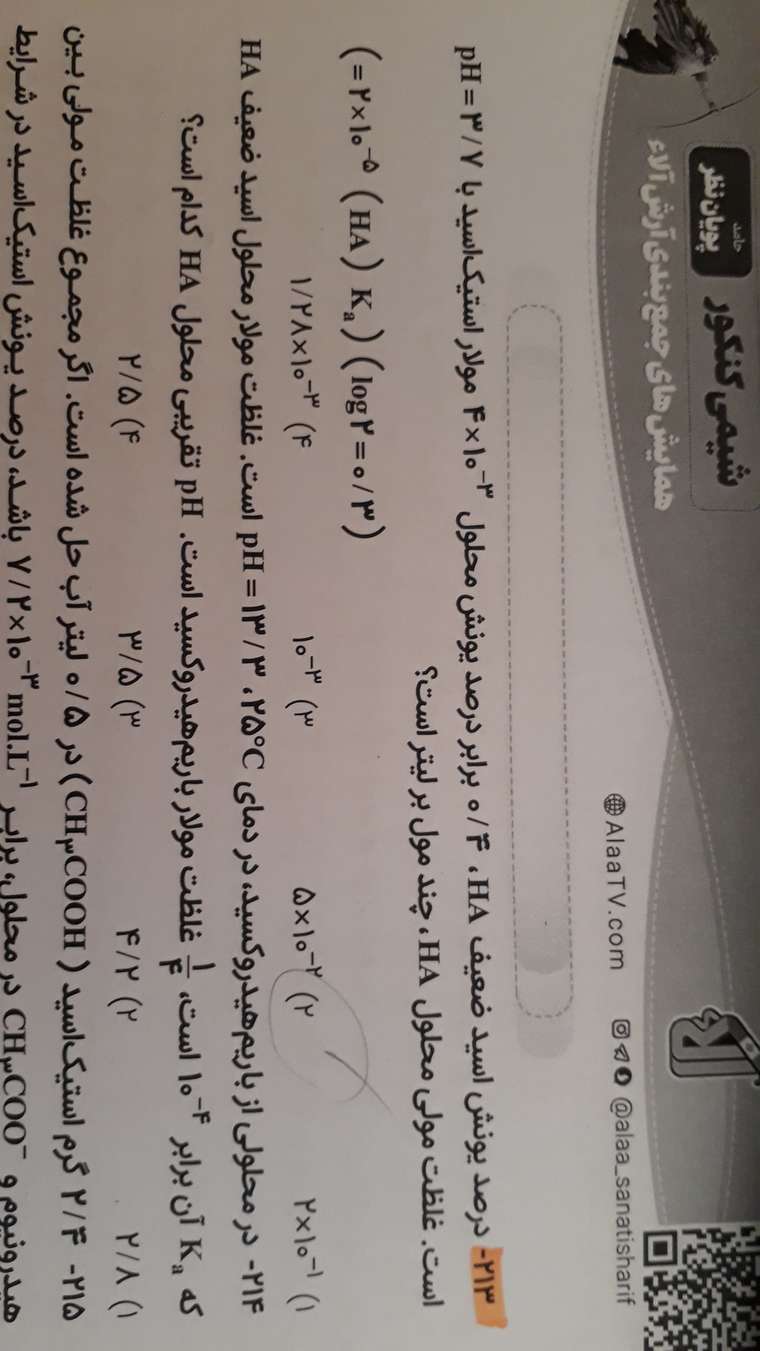 حامد
پویان نظر
شیمی کنکور
همایش های جمع بندی آرش آلاء
AlaaTV.com @alaa_sanatisharif
۲۱۳- درصد یونش اسید ضعیف HA، ۰/۴ برابر درصد یونش محلول ۴×۱۰⁻³ مولار استیک‌اسید با pH = ۳/۷
است. غلظت مولی محلول HA، چند مول بر لیتر است؟
(log۲ = ۰/۳) (Kₐ (HA) = ۲×۱۰⁻⁵)
۱) ۲×۱۰⁻¹ ۲) ۵×۱۰⁻² ۳) ۱۰⁻³ ۴) ۱/۲۸×۱۰⁻³
۲۱۴- در محلولی از باریم‌هیدروکسید، در دمای ۲۵°C، pH = ۱۳/۳ است. غلظت مولار محلول اسید ضعیف HA
که Kₐ آن برابر ۱۰⁻⁴ است، ۱/۴ غلظت مولار باریم‌هیدروکسید است. pH تقریبی محلول HA کدام است؟
۱) ۲/۸ ۲) ۴/۲ ۳) ۳/۵ ۴) ۲/۵
۲۱۵- ۲/۴ گرم استیک‌اسید (CH₃COOH) در ۰/۵ لیتر آب حل شده است. اگر مجموع غلظت مولی بین
هیدرونیوم و CH₃COO⁻ در محلول، برابر ۷/۲×۱۰⁻³ mol.L⁻¹ باشد، درصد یونش استیک‌اسید در شرایط